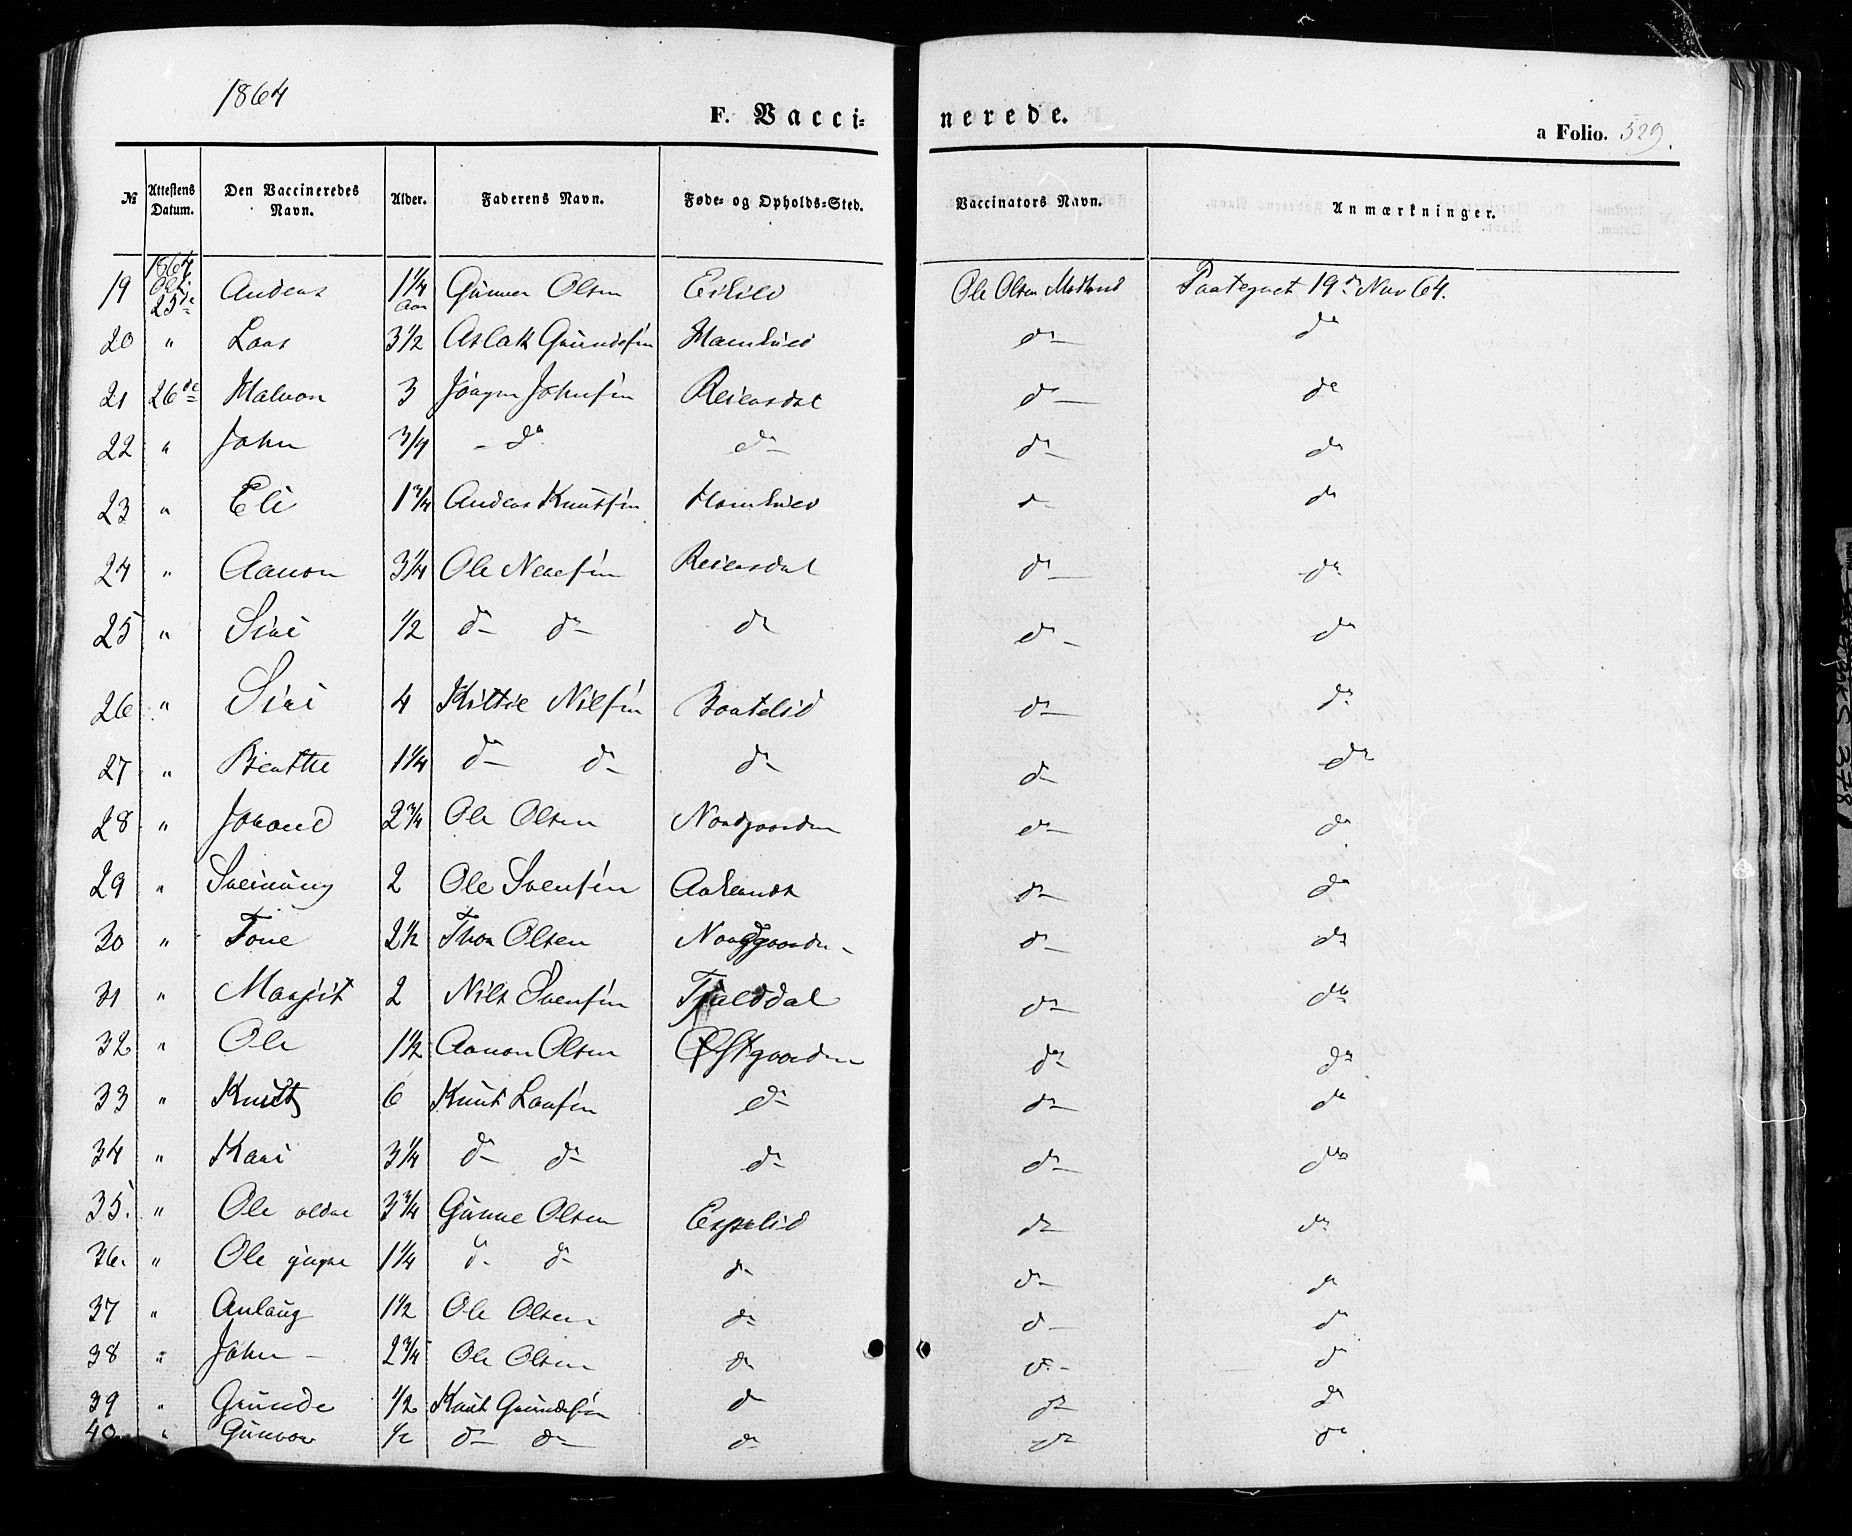 1864
F. Vacci- nerede. a Folio. 529.
№ Attestens Datum. Den Vaccineredes Navn. Alder. Faderens Navn. Føde- og Opholds-Sted. Vaccinators Navn. Anmærkninger.
19 1864 Oct. 25de Anders 1 1/4 Aar Gunner Olsen Eikild Ole Olsen Modland Paategnet 19de Nov 64.
20 " Lars 3 1/2 Aslak Grundesen Hamkild do do
21 26de Halvor 3 Jörgen Johnsen Reiersdal do do
22 " John 3/4 - do do do do
23 " Eli 1 3/4 Anders Knutsen Hamkild do do
24 " Aanon 3 1/4 Ole Nersen Reiersdal do do
25 " Siri 1/2 do do do do do
26 " Siri 4 Kittil Nilsen Baatelid do do
27 " Berthe 1 1/4 do do do do do
28 " Johand 2 3/4 Ole Olsen Nordgaarden do do
29 " Sveinung 2 Ole Svensen Aakendt do do
30 " Tone 2 1/2 Thor Olsen Nordgaarden do do
31 " Margit 2 Nils Svensen Tjalddal do do
32 " Ole 1 1/2 Aanon Olsen Østgaarden do do
33 " Knut 6 Knut Larsen do do do
34 " Kari 3 1/4 do do do do do
35. " Ole eldre 3 3/4 Gunne Olsen Espelid do do
36. " Ole yngre 1 1/4 do do do do do
37 " Anlaug 1 1/2 Ole Olsen do do do
38 " John - 2 3/4 Ole Olsen do do do
39 " Grunde 1/2 Knut Grundesen do do do
40 " Gunvor 1/2 do do do do do